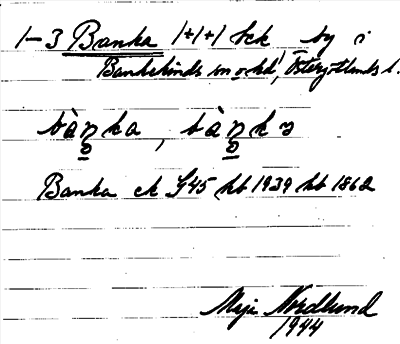 1–3 Banka 1+1+1 sck by i
Bankekinds sn o hd, Östergötlands l.
bàŋka, bàŋkɔ
Banka ek G45 hb 1939 hb 1862
Maja Nordlund
1944